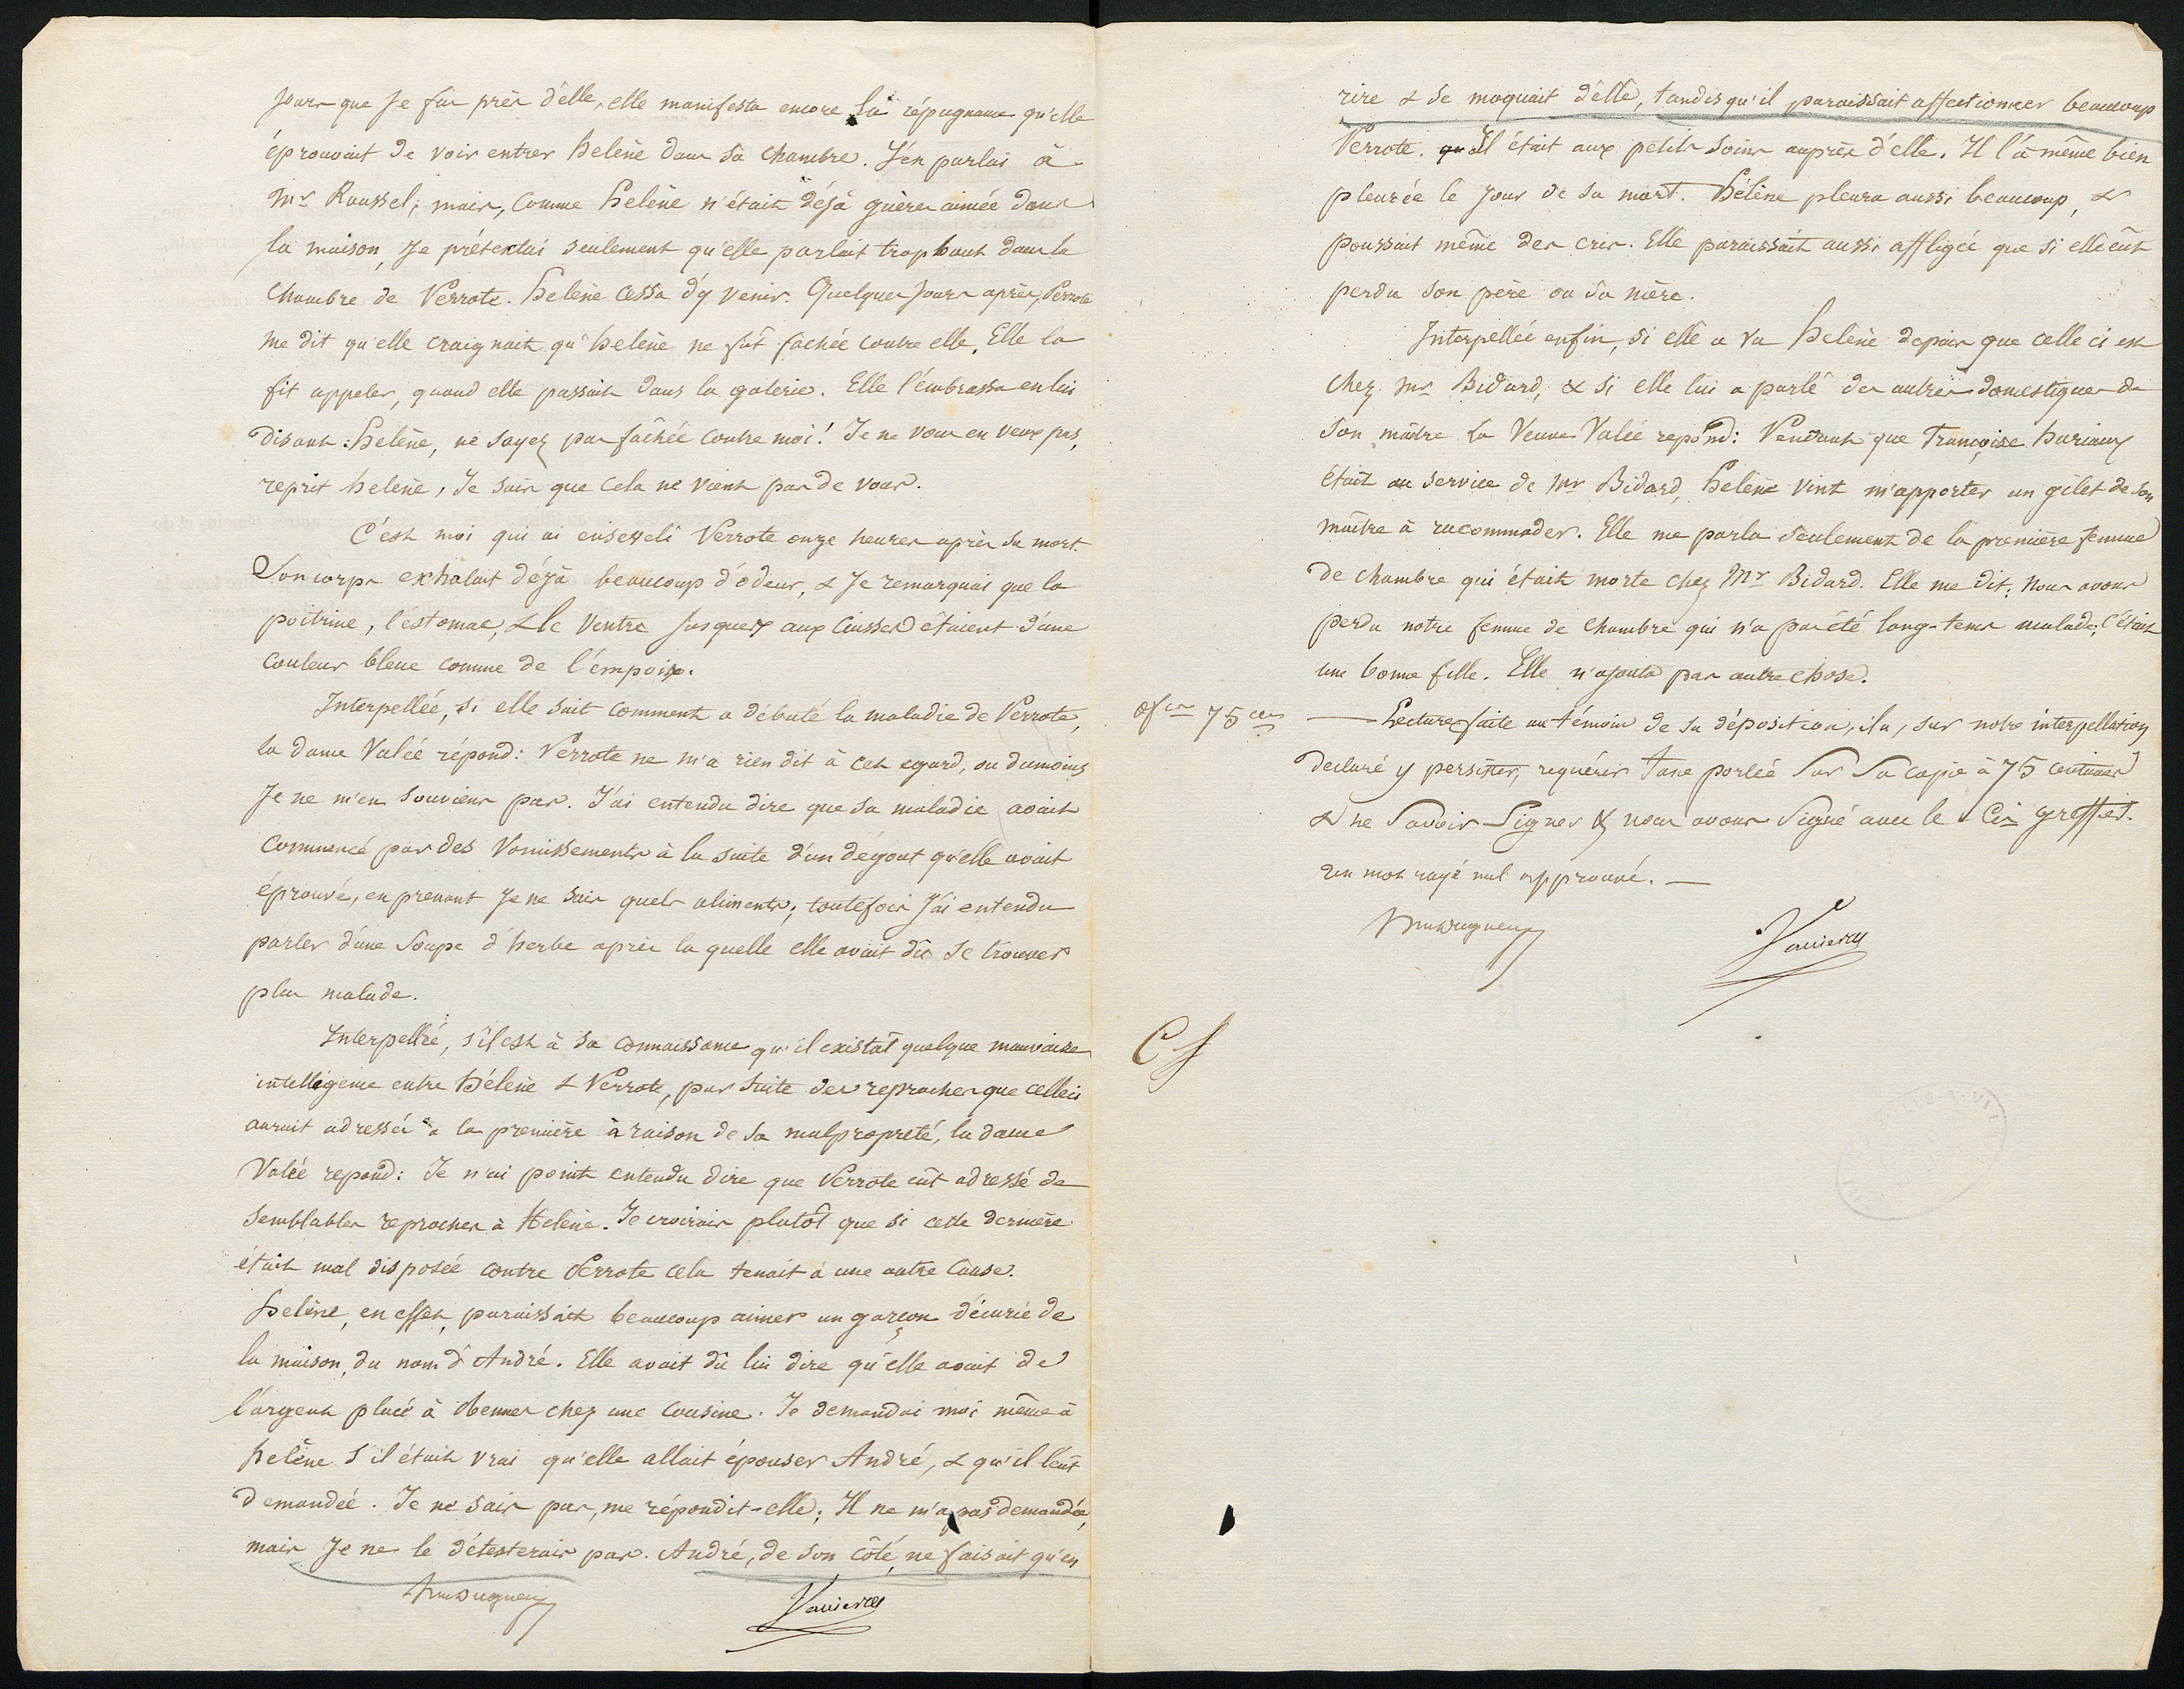 jours que je fus près d'elle, elle manifesta encore la répugnance qu'elle
éprouvait de voir entrer helène dans sa chambre. J'en parlai à
Mr Roussel; mais, comme helène n'était déjà guères aimée dans
la maison, je prétextai seulement qu'elle parlait trop haut dans la
chambre de Perrote. helène cessa d'y venir. Quelques jours après, Perrote
me dit qu'elle craignait qu'helène ne fût fachée contre elle. Elle la
fit appeler, quand elle passait dans la galerie. Elle l'embrassa en lui
disant: helène, ne soyez pas fâchée contre moi! Je ne vous en veux pas,
reprit helène, Je sais que cela ne vient pas de vous.
C'est moi qui ai enseveli Perrote onze heures après sa mort.
Son corps exhalait déjà beaucoup d'odeur, & je remarquai que la
poitrine, l'estomac, & le ventre jusques aux cuisses étaient d'une
couleur bleue comme de l'empoix.
Interpellée, si elle sait comment a débuté la maladie de Perrote,
la dame Valée répond: Perrote ne m'a rien dit à cet egard, ou dumoins
Je ne m'en souviens pas. J'ai entendu dire que sa maladie avait
commencé par des vomissements à la suite d'un dégout qu'elle avait
éprouvé, en prenant je ne sais quels aliments; toutefois j'ai entendu
parler d'une soupe d'herbe après la quelle elle avait dû se trouver
plus malade.
Interpellée, s'il est à sa connaissance qu'il existât quelque mauvaise
intelligence entre hélène & Perrote, par suite des reproches que celle ci
aurait adressés à la première à raison de sa malpropreté, la dame
Valée repond: Je n'ai point entendu dire que Perrote eût adressé de
semblables reproches à Helène. Je croirais plutôt que si cette dernière
était mal disposée contre Perrote cela tenait à une autre cause.
helène, en effet, paraissait beaucoup aimer un garçon d'écurie de
la maison, du nom d'André. Elle avait dû lui dire qu'elle avait de
l'argent placé à Rennes chez une cousine. Je demandai moi même à
helène s'il était vrai qu'elle allait épouser André, & qu'il l'eût
demandée. Je ne sais pas, me répondit-elle; Il ne m'a pas demandée,
mais je ne le détesterais pas. André, de son côté, ne faisait qu'en
rire & se moquait d'elle, tandis qu'il paraissait affectionner beaucoup
Perrote. qu Il était aux petits soins auprès d'elle. Il l'a même bien
pleurée le jour de sa mort. hélène pleura aussi beaucoup, &
poussait même des cris. Elle paraissait aussi affligée que si elle eût
perdu son père ou sa mère.
Interpellée enfin, si elle a vu helène depuis que celle ci est
chez Mr Bidard, & si elle lui a parlé des autres domestiques de
son maître la Veuve Valée repond: Pendant que Françoise huriaux
était au service de Mr Bidard, helène vint m'apporter un gilet de son
maître à racommoder. Elle me parla seulement de la première femme
de chambre qui était morte chez Mr Bidard. Elle me dit: Nous avons
perdu notre femme de chambre qui n'a pas été long-tems malade; c'était
une bonne fille. Elle n'ajouta pas autre chose.
0f 75 ces
Lecture faite au témoin de sa déposition, il a, sur notre interpellation
declaré y persister, requérir taxe portée sur sa copie à 75 centimes
& ne savoir signer & nous avons signé avec le Cis greffier.
un mot rayé nul approuvé.